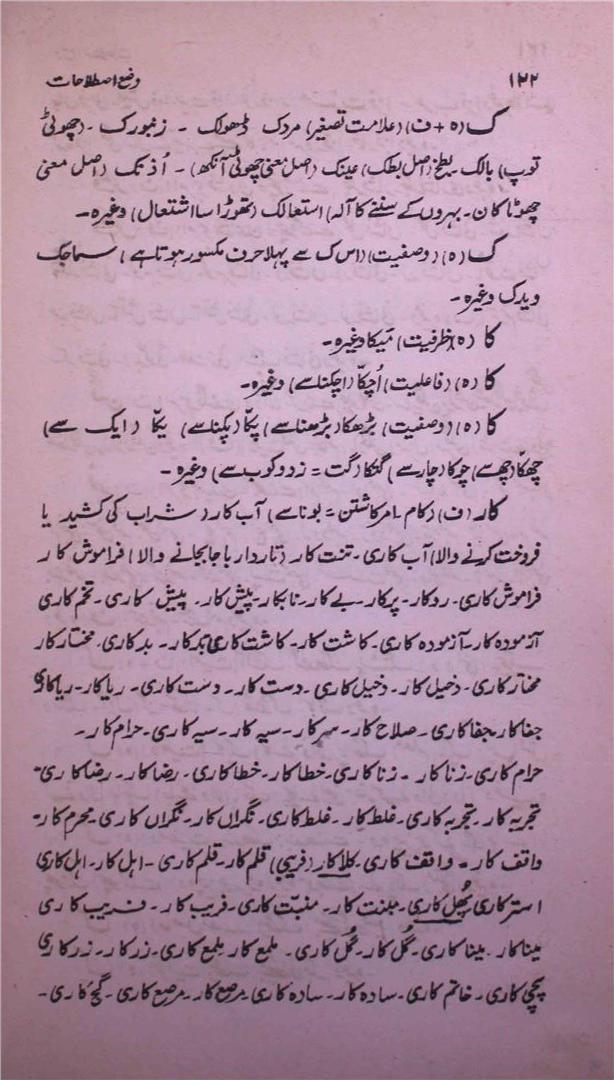 ۱۲۲ وضع اصطلاحات
ک (ہ + ف) (علامت تصغیر) مردک ڈھولک ۔ زنبورک ۔ (چھوٹی
توپ) بالک ۔ بطخ (اصل بطک) عینک (اصل معنی چھوٹی آنکھ) ۔ اُذنک (اصل معنی
چھوٹا کان ۔ بہروں کے سننے کا آلہ) استعالک (تھوڑا سا اشتعال) وغیرہ ۔
ک (ہ) (وصفیت) (اس ک سے پہلا حرف مکسور ہوتا ہے) سماجک
ویدک وغیرہ ۔
کا (ہ) (ظرفیت) میکا وغیرہ ۔
کا (ہ) (فاعلیت) اُچکّا (اچکنا سے) وغیرہ ۔
کا (ہ) (وصفیت) بڑھکا (بڑھنا سے) پکّا (پکنا سے) یکّا (ایک سے)
چھکّا (چھ سے) چوکا (چار سے) گتکا (گت = زد و کوب سے) وغیرہ ۔
کار (ف) (کام ۔ امر کاشتن = بونا سے) آب کار (شراب کی کشید یا
فروخت کرنے والا) آب کاری ۔ تنت کار (تاردار باجا بجانے والا) فراموش کار
فراموش کاری ۔ رو کار ۔ پرکار ۔ بے کار ۔ نابکار ۔ پیش کار ۔ پیش کاری ۔ تخم کاری
آزمودہ کار ۔ آزمودہ کاری ۔ کاشت کار ۔ کاشت کاری ۔ بدکار ۔ بدکاری ۔ مختار کار
مختار کاری ۔ دخیل کار ۔ دخیل کاری ۔ دست کار ۔ دست کاری ۔ ریاکار ۔ ریاکاری
جفاکار ۔ جفاکاری ۔ صلاح کار ۔ سرکار ۔ سیہ کار ۔ سیہ کاری ۔ حرام کار ۔
حرام کاری ۔ زنا کار ۔ زنا کاری ۔ خطا کار ۔ خطا کاری ۔ رضا کار ۔ رضا کاری ۔
تجربہ کار ۔ تجربہ کاری ۔ غلط کار ۔ غلط کاری ۔ نگراں کار ۔ نگراں کاری ۔ محرم کار ۔
واقف کار ۔ واقف کاری ۔ کلاکار (فریبی) قلم کار ۔ قلم کاری ۔ اہل کار ۔ اہل کاری
استر کاری ۔ پھل کاری ۔ منبت کار ۔ منبت کاری ۔ فریب کار ۔ فریب کاری
مینا کار ۔ مینا کاری ۔ گل کار ۔ گل کاری ۔ ملمع کار ۔ ملمع کاری ۔ زر کار ۔ زر کاری
پچی کاری ۔ خاتم کاری ۔ سادہ کار ۔ سادہ کاری ۔ مرصع کار ۔ مرصع کاری ۔ گچ کاری ۔